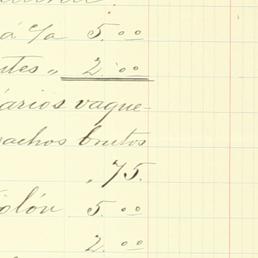 á c/a 5.00
tes „ 2.00
ários vaque-
achos brutos
„ 75.
olón 5.00
2.00